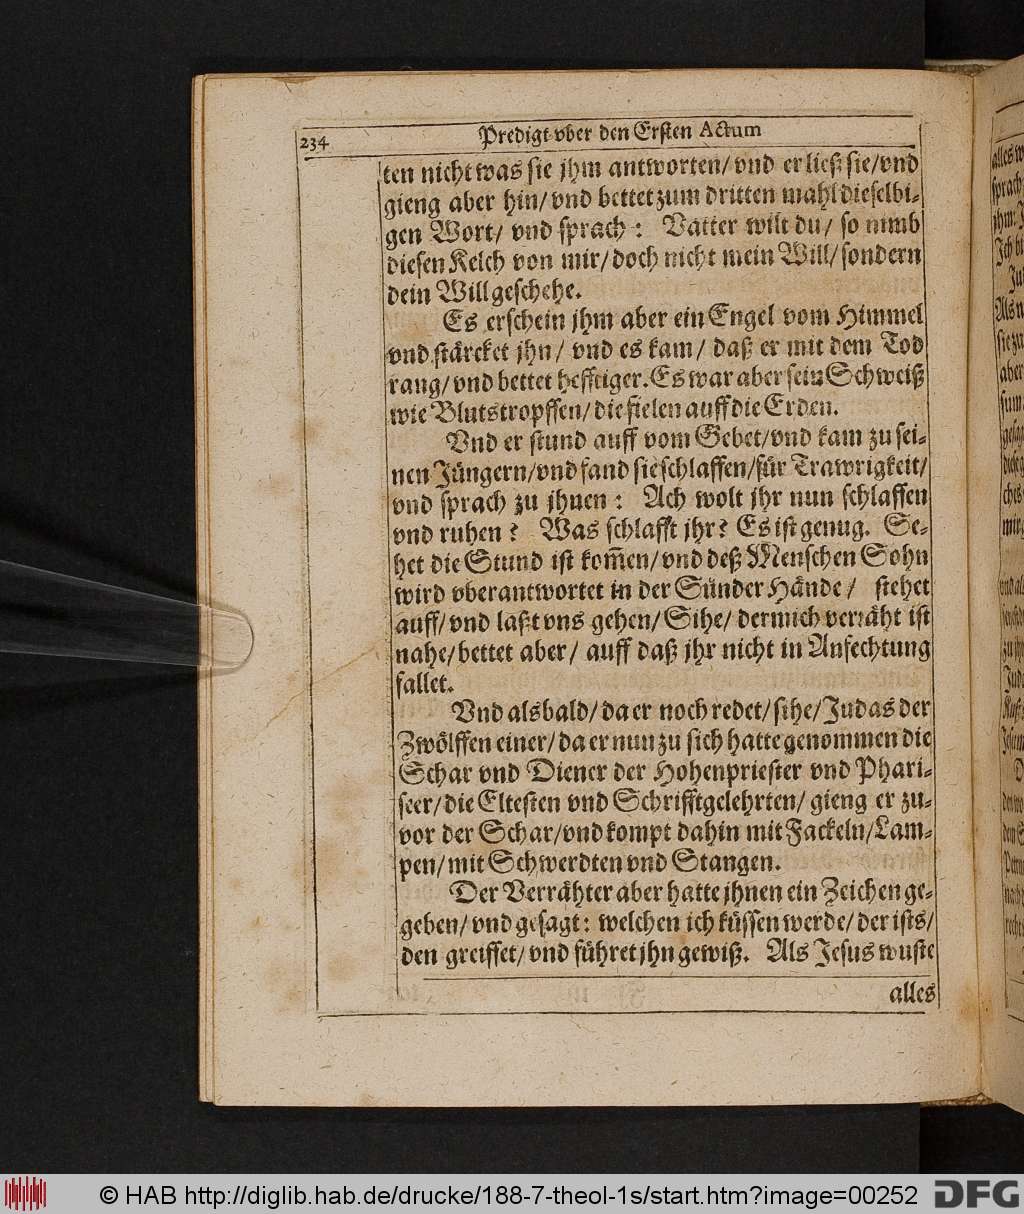 234
Predigt vber den Ersten Actum
ten nicht was sie jhm antworten/ vnd er ließ sie/ vnd
gieng aber hin/ vnd bettet zum dritten mahl dieselbi-
gen Wort/ vnd sprach: Vatter wilt du/ so nimb
diesen Kelch von mir/ doch nicht mein Will/ sondern
dein Will geschehe.
Es erschein jhm aber ein Engel vom Himmel
vnd stärcket jhn/ vnd es kam/ daß er mit dem Tod
rang/ vnd bettet hefftiger. Es war aber sein Schweiß
wie Blutstropffen/ die fielen auff die Erden.
Vnd er stund auff vom Gebet/ vnd kam zu sei-
nen Jüngern/ vnd fand sie schlaffen/ für Trawrigkeit/
vnd sprach zu jhnen: Ach wolt jhr nun schlaffen
vnd ruhen? Was schlafft jhr? Es ist genug. Se-
het die Stund ist kom̃en/ vnd deß Menschen Sohn
wird vberantwortet in der Sünder Hände/ stehet
auff/ vnd laßt vns gehen/ Sihe/ der mich verräht ist
nahe/ bettet aber/ auff daß jhr nicht in Anfechtung
fallet.
Vnd alsbald/ da er noch redet/ sihe/ Judas der
Zwölffen einer/ da er nun zu sich hatte genommen die
Schar vnd Diener der Hohenpriester vnd Phari-
seer/ die Eltesten vnd Schrifftgelehrten/ gieng er zu-
vor der Schar/ vnd kompt dahin mit Fackeln/ Lam-
pen/ mit Schwerdten vnd Stangen.
Der Verrähter aber hatte jhnen ein Zeichen ge-
geben/ vnd gesagt: welchen ich küssen werde/ der ists/
den greiffet/ vnd führet jhn gewiß. Als Jesus wuste
alles
© HAB http://diglib.hab.de/drucke/188-7-theol-1s/start.htm?image=00252
DFG